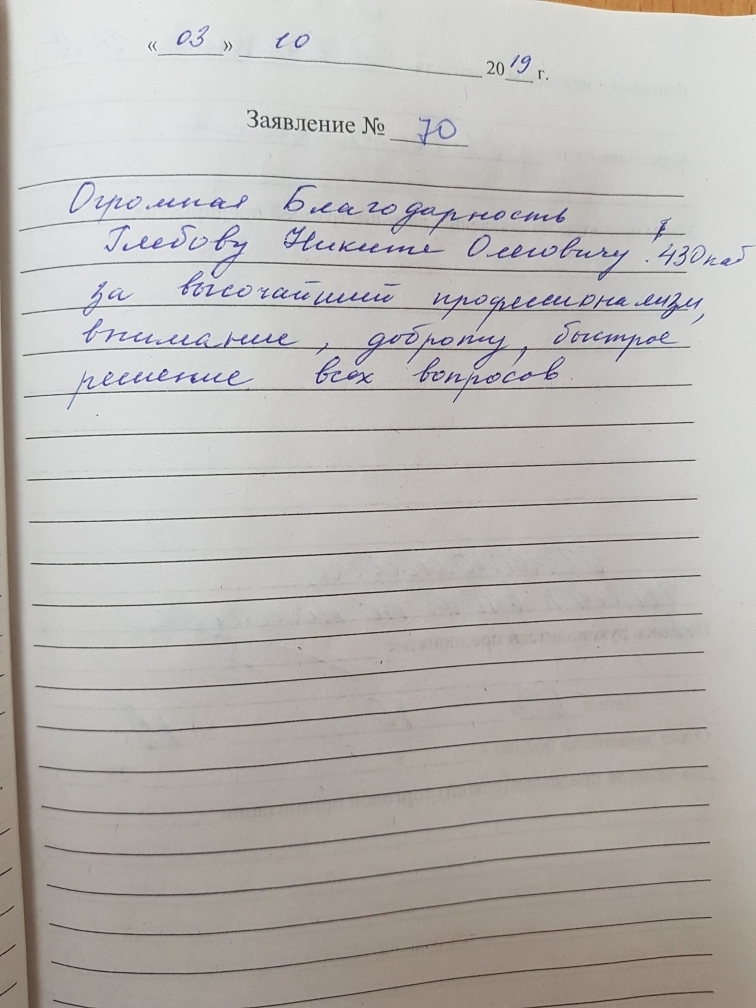 « 03 » 10 2019 г.
Заявление № 70
Огромная Благодарность
Глебову Никите Олеговичу. 430 каб
за высочайший профессионализм,
внимание, доброту, быстрое
решение всех вопросов